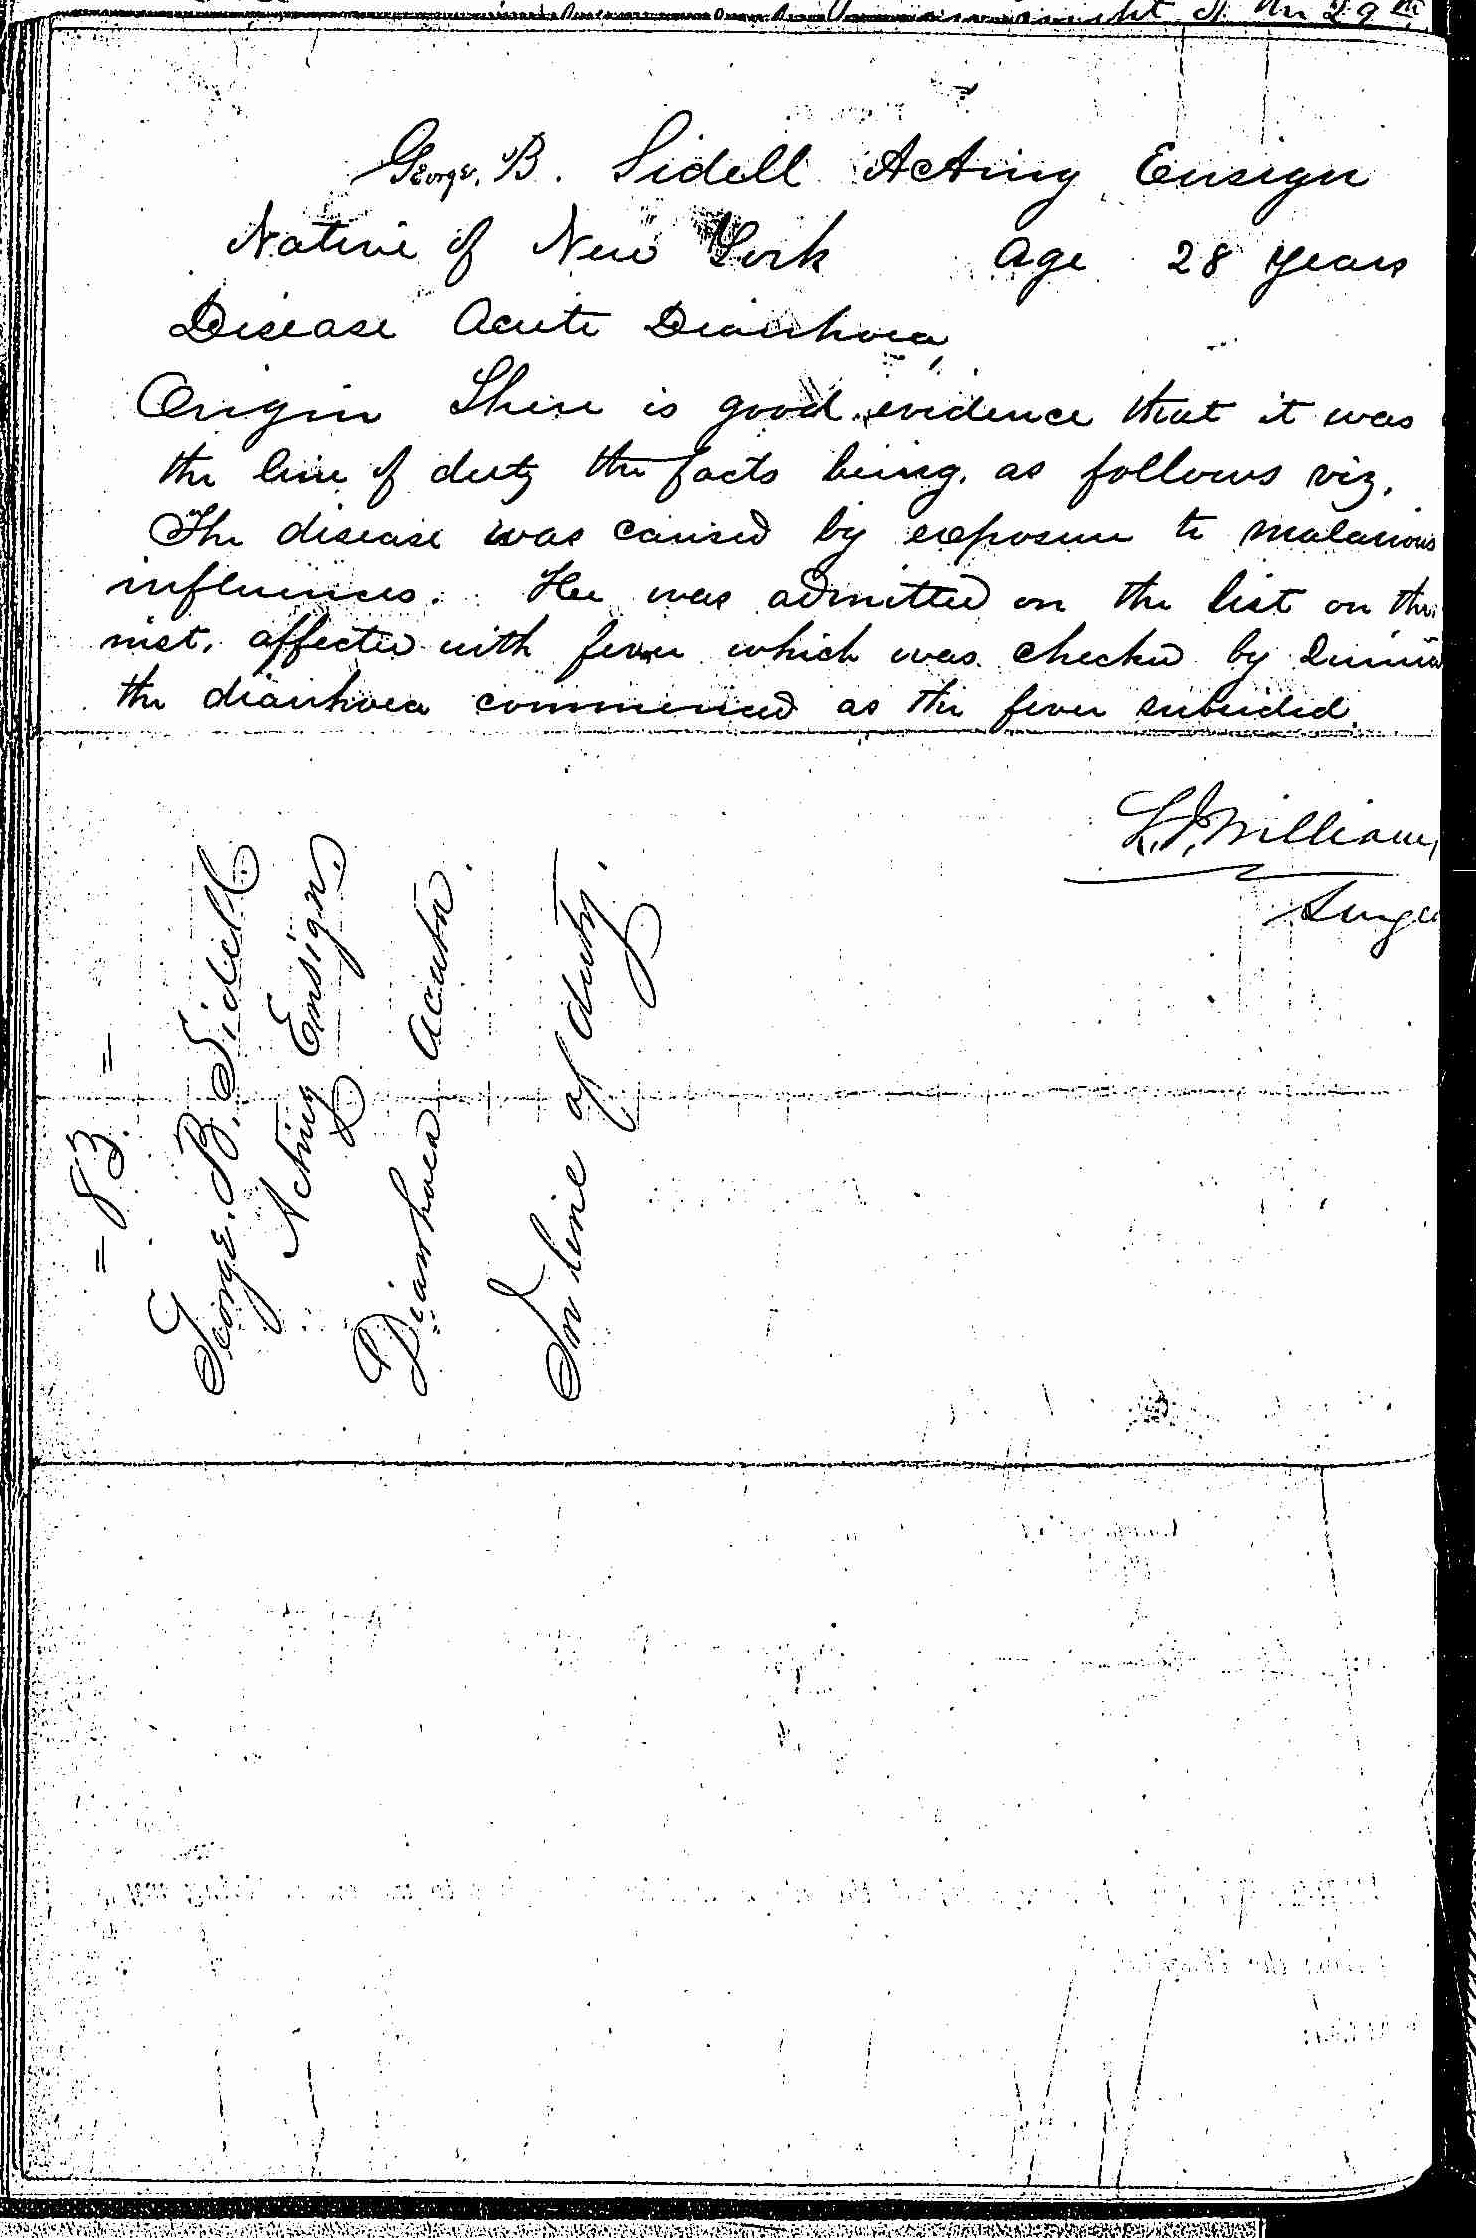 George. B. Sidell Acting Ensign
Native of New York Age 28 years
Disease Acute Diarrhoea,
Origin There is good evidence that it was
the line of duty the facts being, as follows viz.
The disease was caused by exposure to malarious
influences. He was admitted on the list on the
inst. affected with fever which was checked by
the diarrhoea commenced as the fever subsided.
L.J. William
Surge
= 83. =
George. B. Sidell
Acting Ensign.
Diarrhoea Acuta.
In line of duty.